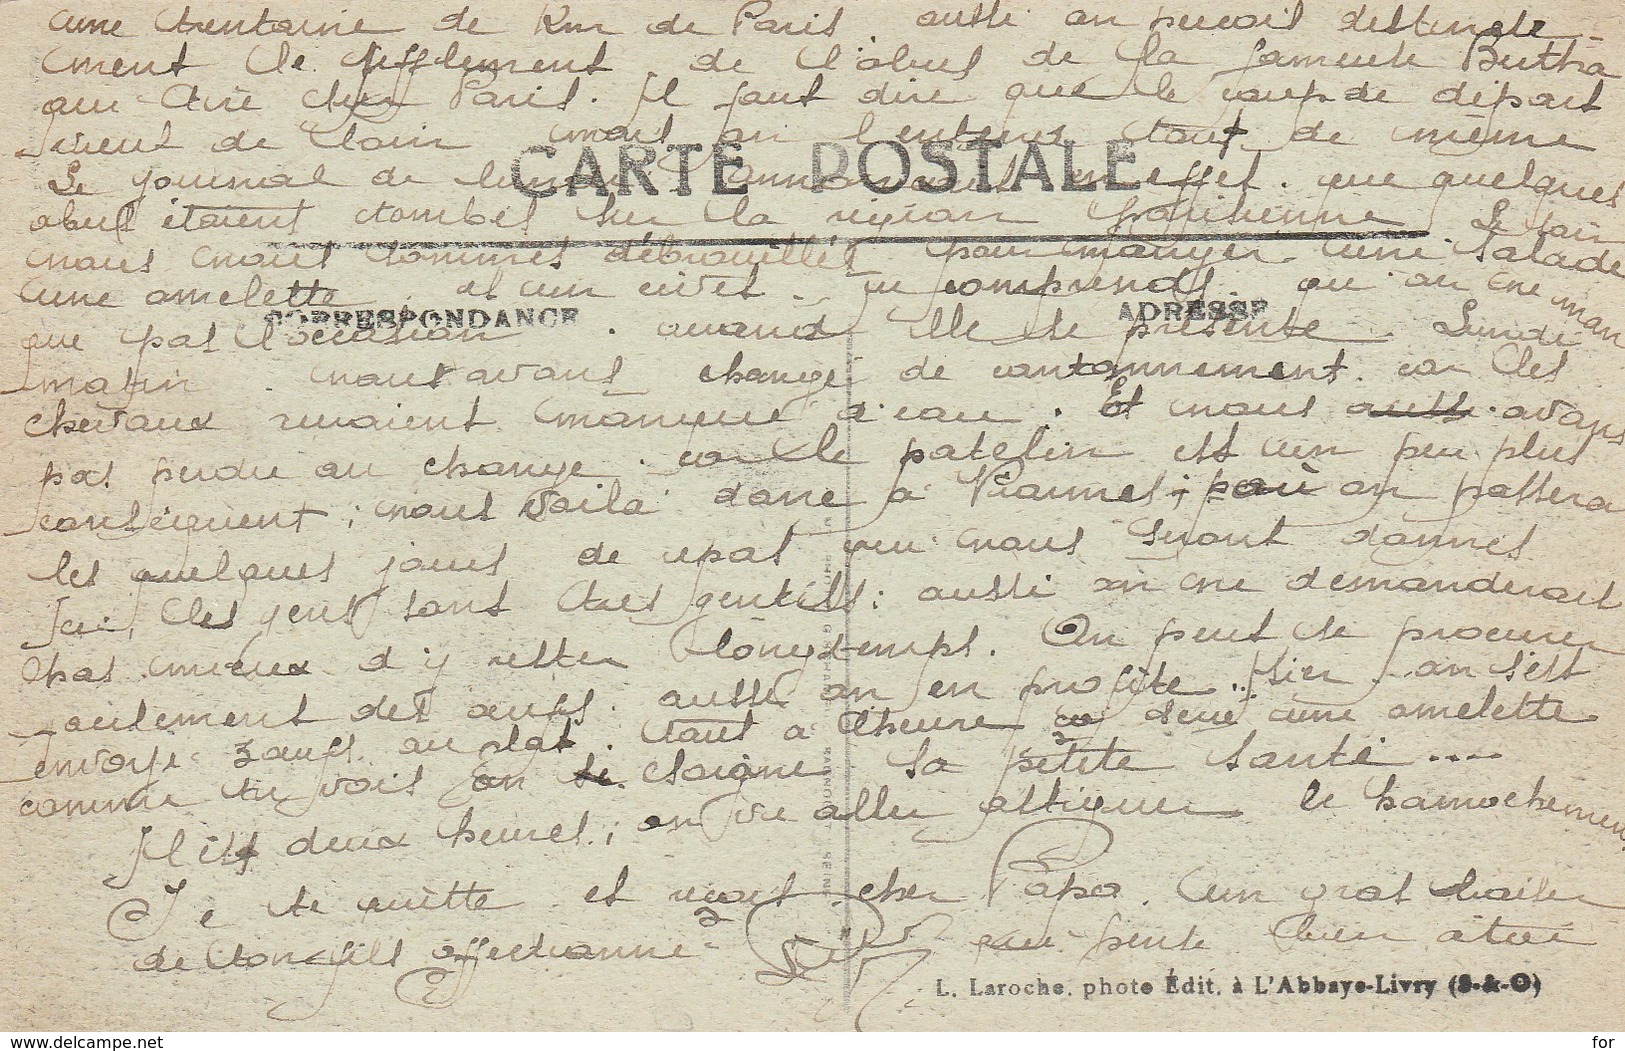 une trentaine de Km de Paris. aussi on percoit distincte-
ment le sifflement de l'obus de la fameuse Bertha
qui tire sur Paris. Il faut dire que le coup de départ
vient de loin mais on l'entend tout de même
CARTE POSTALE
Le journal de annoncait en effet. que quelques
obus étaient tombés sur la région parisienne Le soir
nous nous sommes débrouillés pour manger une salade
une omelette et un civet. tu comprends qu'on ne man
CORRESPONDANCE
ADRESSE
que pas l'occasion. quand elle se présente. Lundi
matin nous avons changé de cantonnement. car les
chevaux avaient manque d'eau. Et nous avons
pas perdu au change. car le patelin est un peu plus
conséquent; nous voila donc a ; où on passera
les quelques jours de repos qui nous seront donnés
Ici, les gens sont tres gentils; aussi on ne demanderait
pas mieux d'y rester longtemps. On peut se procurer
seulement des œufs. aussi on en profite. Hier on s'est
envoye 3 œufs au plat. tout a l'heure une omelette
comme tu vois on soigne sa petite santé ....
Il est deux heures; on va aller astiquer le harnachement
Je te quitte et recois cher Papa. un gros baiser
de ton fils affectionné qui pense bien a toi
L. Laroche, photo Édit. à L'Abbaye-Livry (S-&-O)
www.delcampe.net
for